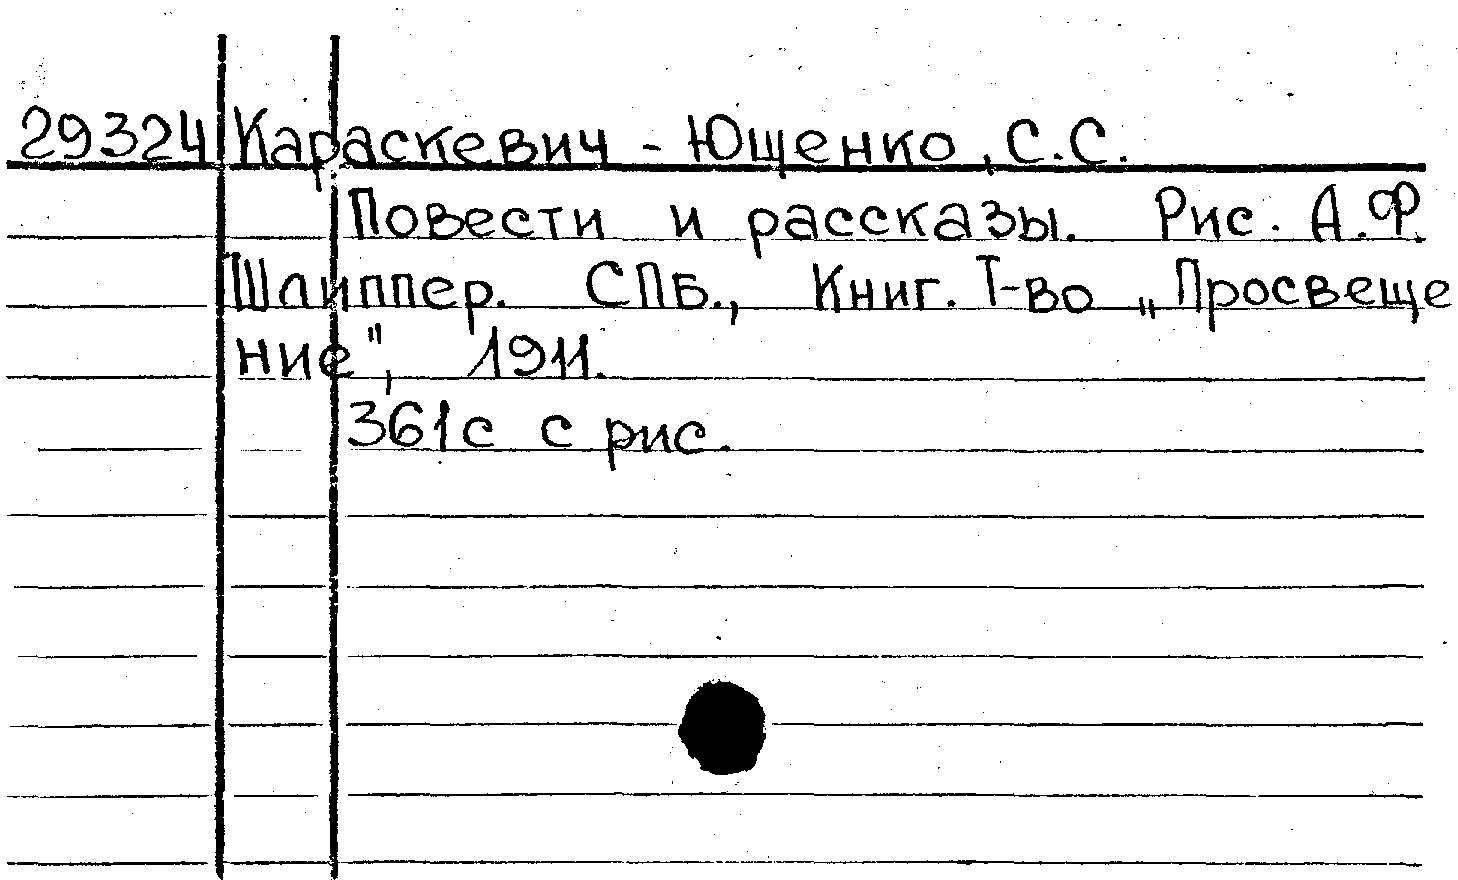 29324 Караскевич - Ющенко, С.С.
Повести и рассказы. Рис. А.Ф.
Шлиппер. СПБ., Книг. Т-во „Просвеще
ние", 1911.
361с с рис.